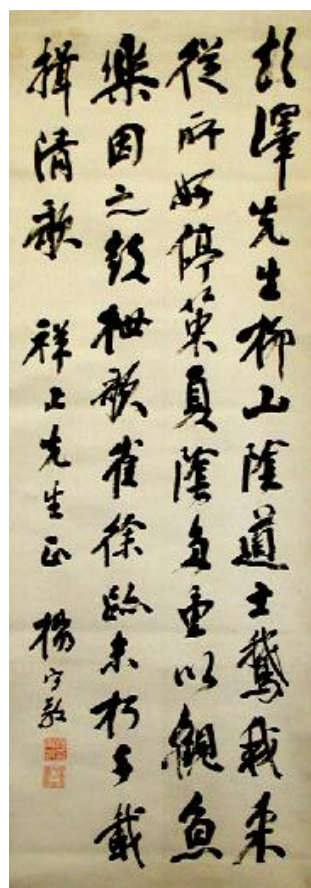 彭澤先生柳山陰道士鵝我来
從所好停策夏陰多重以觀魚
樂因之鼓枻歌崔徐跡未朽千載
揖清歌 祥上先生正 楊守敬